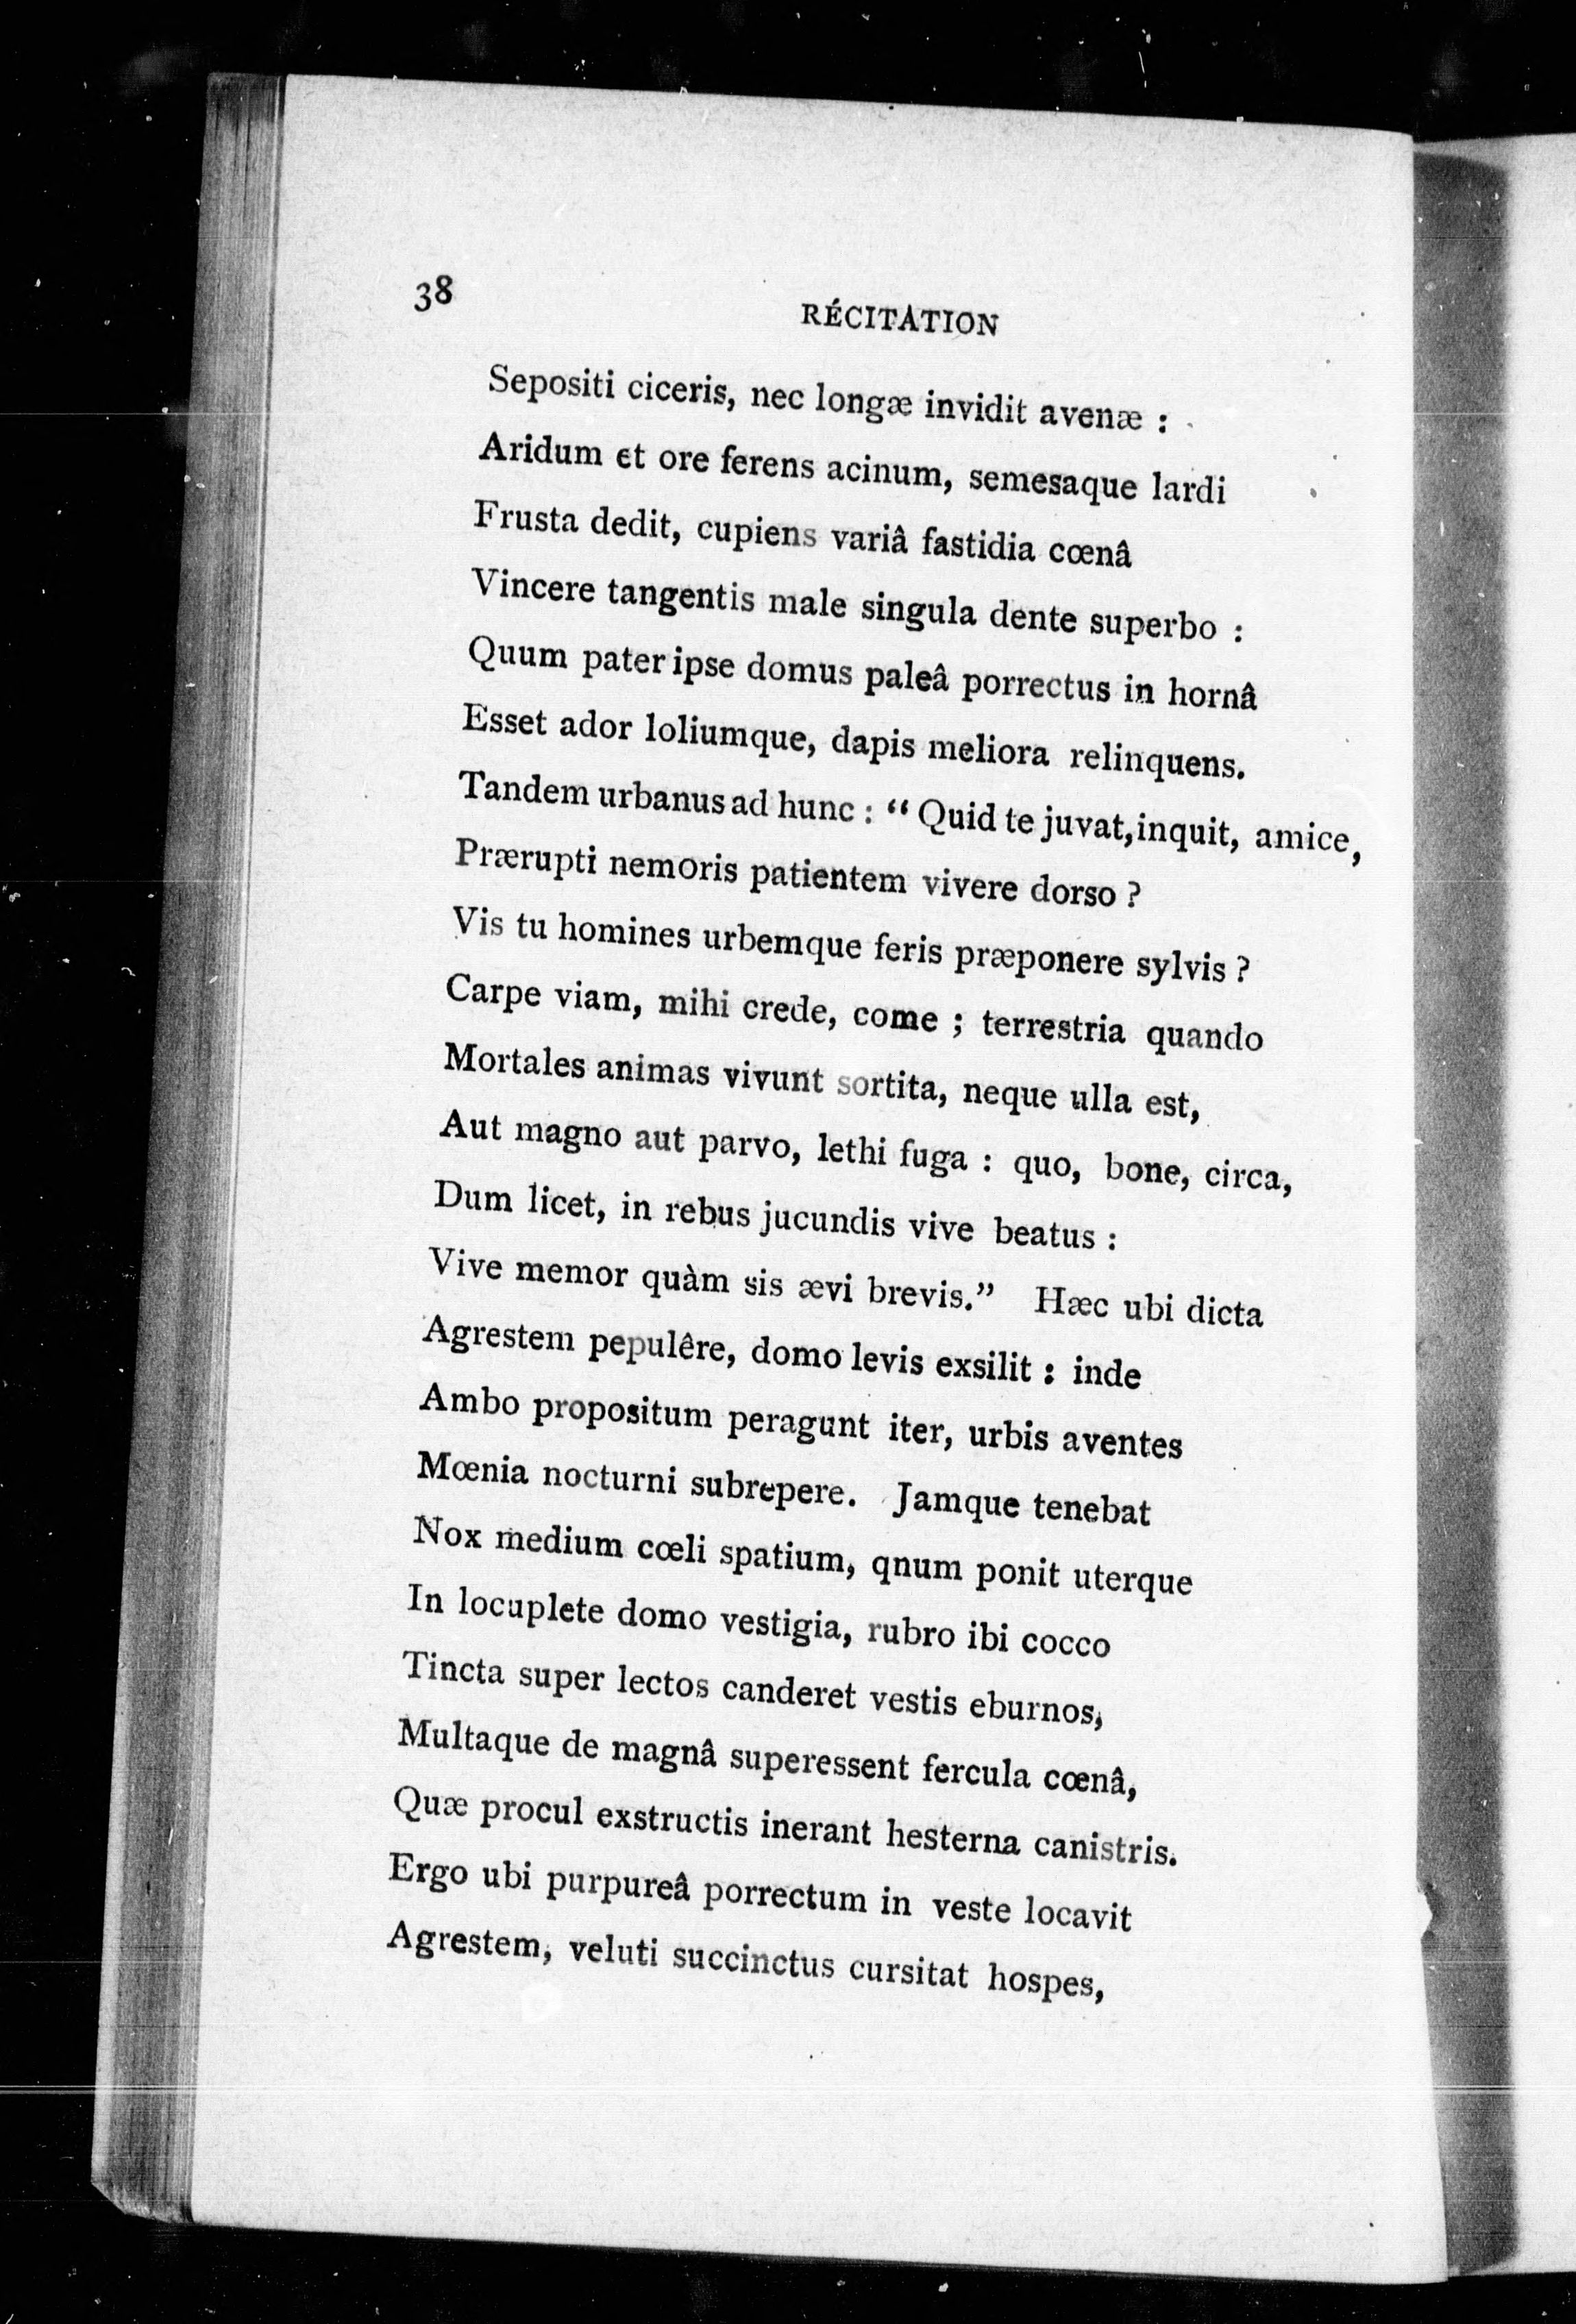 38
RÉCITATION
Sepositi ciceris, nec longæ invidit avenæ :
Aridum et ore ferens acinum, semesaque lardi
Frusta dedit, cupiens variâ fastidia cœnâ
Vincere tangentis male singula dente superbo :
Quum pater ipse domus paleâ porrectus in hornâ
Esset ador loliumque, dapis meliora relinquens.
Tandem urbanus ad hunc : “ Quid te juvat, inquit, amice,
Prærupti nemoris patientem vivere dorso ?
Vis tu homines urbemque feris præponere sylvis ?
Carpe viam, mihi crede, come ; terrestria quando
Mortales animas vivunt sortita, neque ulla est,
Aut magno aut parvo, lethi fuga : quo, bone, circa,
Dum licet, in rebus jucundis vive beatus :
Vive memor quàm sis ævi brevis.” Hæc ubi dicta
Agrestem pepulêre, domo levis exsilit : inde
Ambo propositum peragunt iter, urbis aventes
Mœnia nocturni subrepere. Jamque tenebat
Nox medium cœli spatium, qnum ponit uterque
In locuplete domo vestigia, rubro ibi cocco
Tincta super lectos canderet vestis eburnos,
Multaque de magnâ superessent fercula cœnâ,
Quæ procul exstructis inerant hesterna canistris.
Ergo ubi purpureâ porrectum in veste locavit
Agrestem, veluti succinctus cursitat hospes,